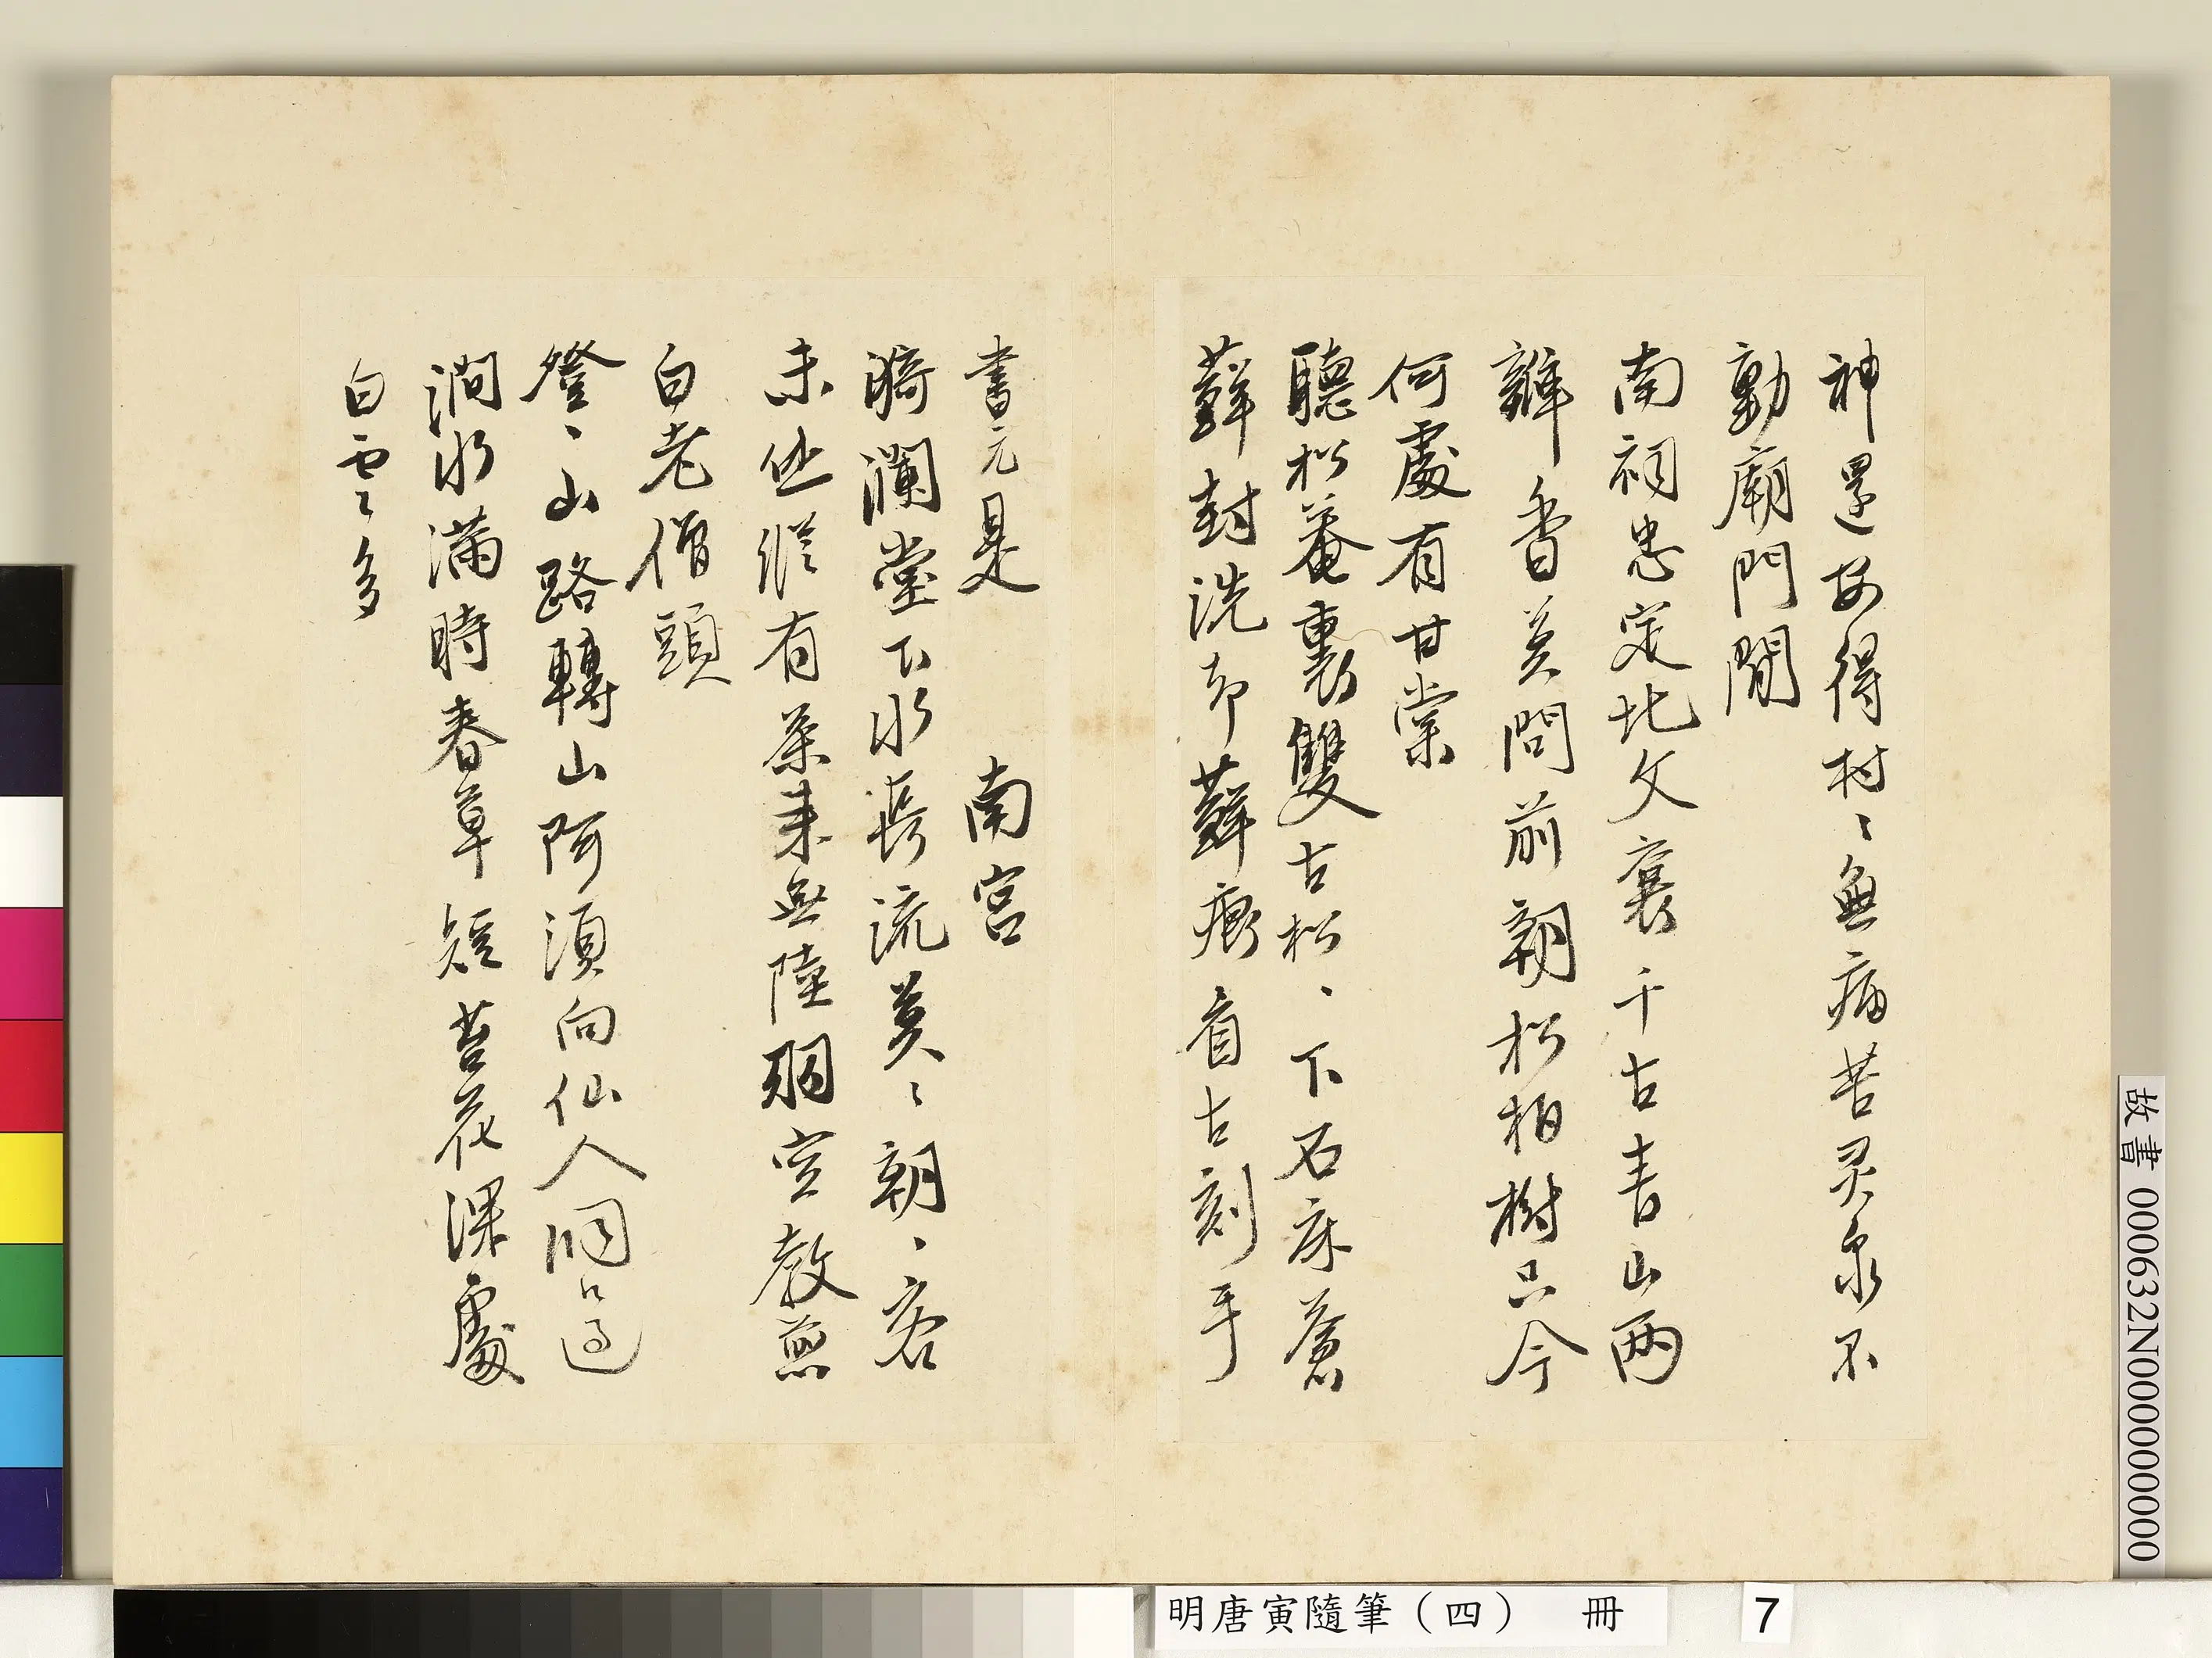 神還安得村〻無痛苦灵泉不
動廟門閒
南祠忠定北文襄千古青山兩
瓣香莫問前朝松柏樹只今
何處有甘棠
聽松菴裏雙古松、下石床蒼
蘚封洗却蘚痕看古刻手
書元是 南宮
漪瀾堂下水長流莫〻朝、客
未休纔有茶来無陸羽空教煎
白老僧頭
磴、山路轉山阿須向仙人洞口過
澗水滿時春草短苔花深處
白雲〻多
故書 000632N000000000
明唐寅隨筆（四） 冊 7